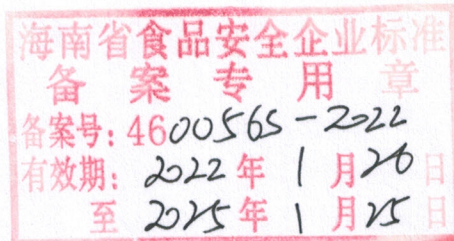 海南省食品安全企业标准
备案专用章
备案号：4600565-2022
有效期：2022年1月26日
至2025年1月25日